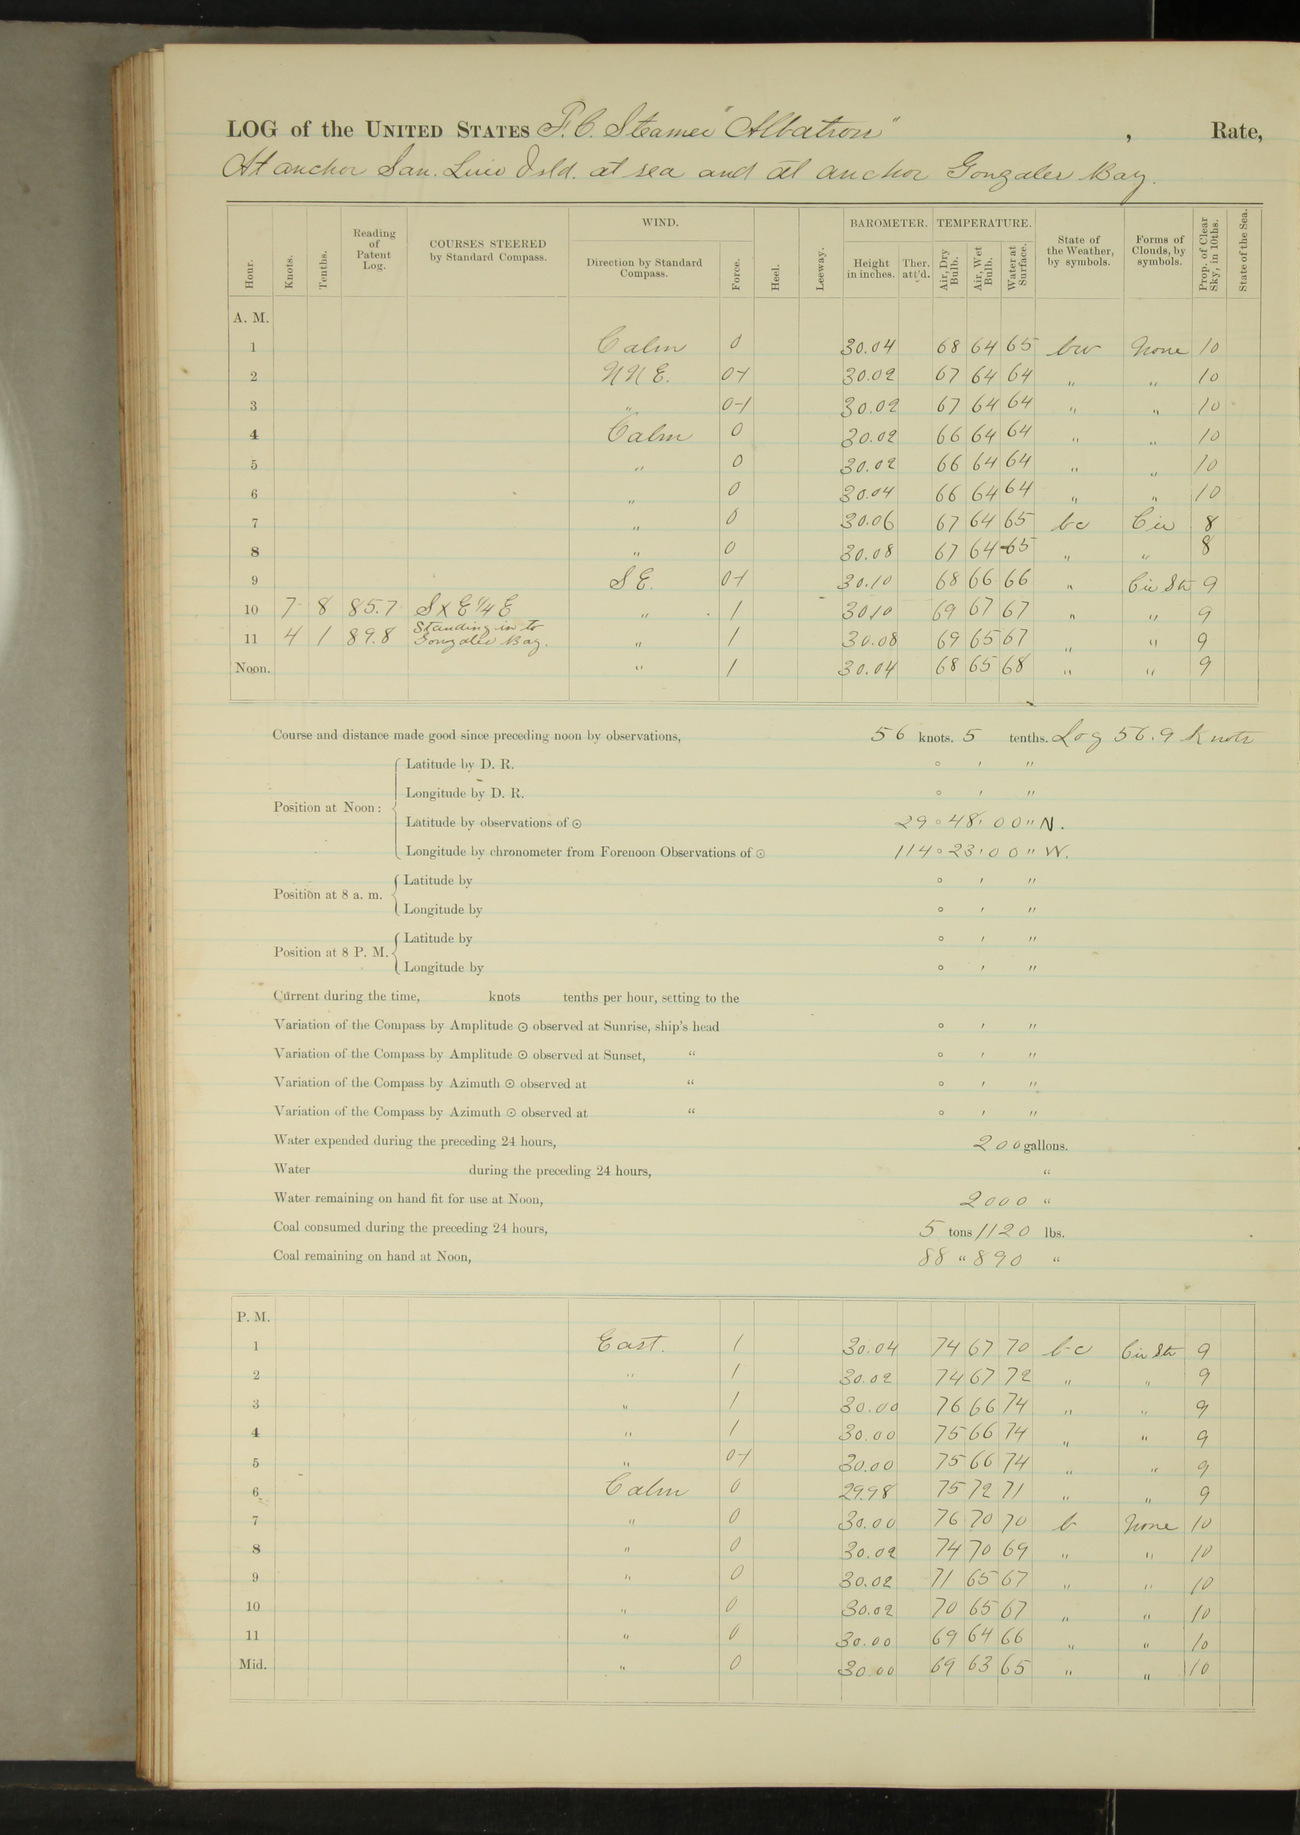 LOG of the UNITED STATES F.C. Steamer "Albatross" , Rate,
At anchor San Luis Isld. at sea and at anchor Gonzales Bay.
Hour. Knots. Tenths. Reading of Patent Log. COURSES STEERED by Standard Compass. WIND. Direction by Standard Compass. Force. Heel. Leeway. BAROMETER. Height in inches. Ther. att'd. TEMPERATURE. Air, Dry Bulb. Air, Wet Bulb. Water at Surface. State of the Weather, by symbols. Forms of Clouds, by symbols. Prop. of Clear Sky, in 10ths. State of the Sea.
A. M.
1 Calm 0 30.04 68 64 65 bw None 10
2 NNE. 0-1 30.02 67 64 64 " " 10
3 " 0-1 30.02 67 64 64 " " 10
4 Calm 0 30.02 66 64 64 " " 10
5 " 0 30.02 66 64 64 " " 10
6 " 0 30.04 66 64 64 " " 10
7 " 0 30.06 67 64 65 bc Cir 8
8 " 0 30.08 67 64 65 " " 8
9 SE. 0-1 30.10 68 66 66 " Cir Str 9
10 7 8 85.7 S x E 1/4 E " 1 30.10 69 67 67 " " 9
11 4 1 89.8 Standing in to Gonzales Bay. " 1 30.08 69 65 67 " " 9
Noon. " 1 30.04 68 65 68 " " 9
Course and distance made good since preceding noon by observations, 56 knots. 5 tenths. Log 56.9 Knots
Position at Noon: Latitude by D. R. ° ′ ″
Longitude by D. R. ° ′ ″
Latitude by observations of ⊙ 29° 48′ 00″ N.
Longitude by chronometer from Forenoon Observations of ⊙ 114° 23′ 00″ W.
Position at 8 a. m. Latitude by ° ′ ″
Longitude by ° ′ ″
Position at 8 P. M. Latitude by ° ′ ″
Longitude by ° ′ ″
Current during the time, knots tenths per hour, setting to the
Variation of the Compass by Amplitude ⊙ observed at Sunrise, ship's head ° ′ ″
Variation of the Compass by Amplitude ⊙ observed at Sunset, “ ° ′ ″
Variation of the Compass by Azimuth ⊙ observed at “ ° ′ ″
Variation of the Compass by Azimuth ⊙ observed at “ ° ′ ″
Water expended during the preceding 24 hours, 200 gallons.
Water during the preceding 24 hours, “
Water remaining on hand fit for use at Noon, 2000 “
Coal consumed during the preceding 24 hours, 5 tons 1120 lbs.
Coal remaining on hand at Noon, 88 “ 890 “
P. M.
1 East. 1 30.04 74 67 70 bc Cir Str 9
2 " 1 30.02 74 67 72 " " 9
3 " 1 30.00 76 66 74 " " 9
4 " 1 30.00 75 66 74 " " 9
5 " 0-1 30.00 75 66 74 " " 9
6 Calm 0 29.98 75 72 71 " " 9
7 " 0 30.00 76 70 70 b None 10
8 " 0 30.02 74 70 69 " " 10
9 " 0 30.02 71 65 67 " " 10
10 " 0 30.02 70 65 67 " " 10
11 " 0 30.00 69 64 66 " " 10
Mid. " 0 30.00 69 63 65 " " 10